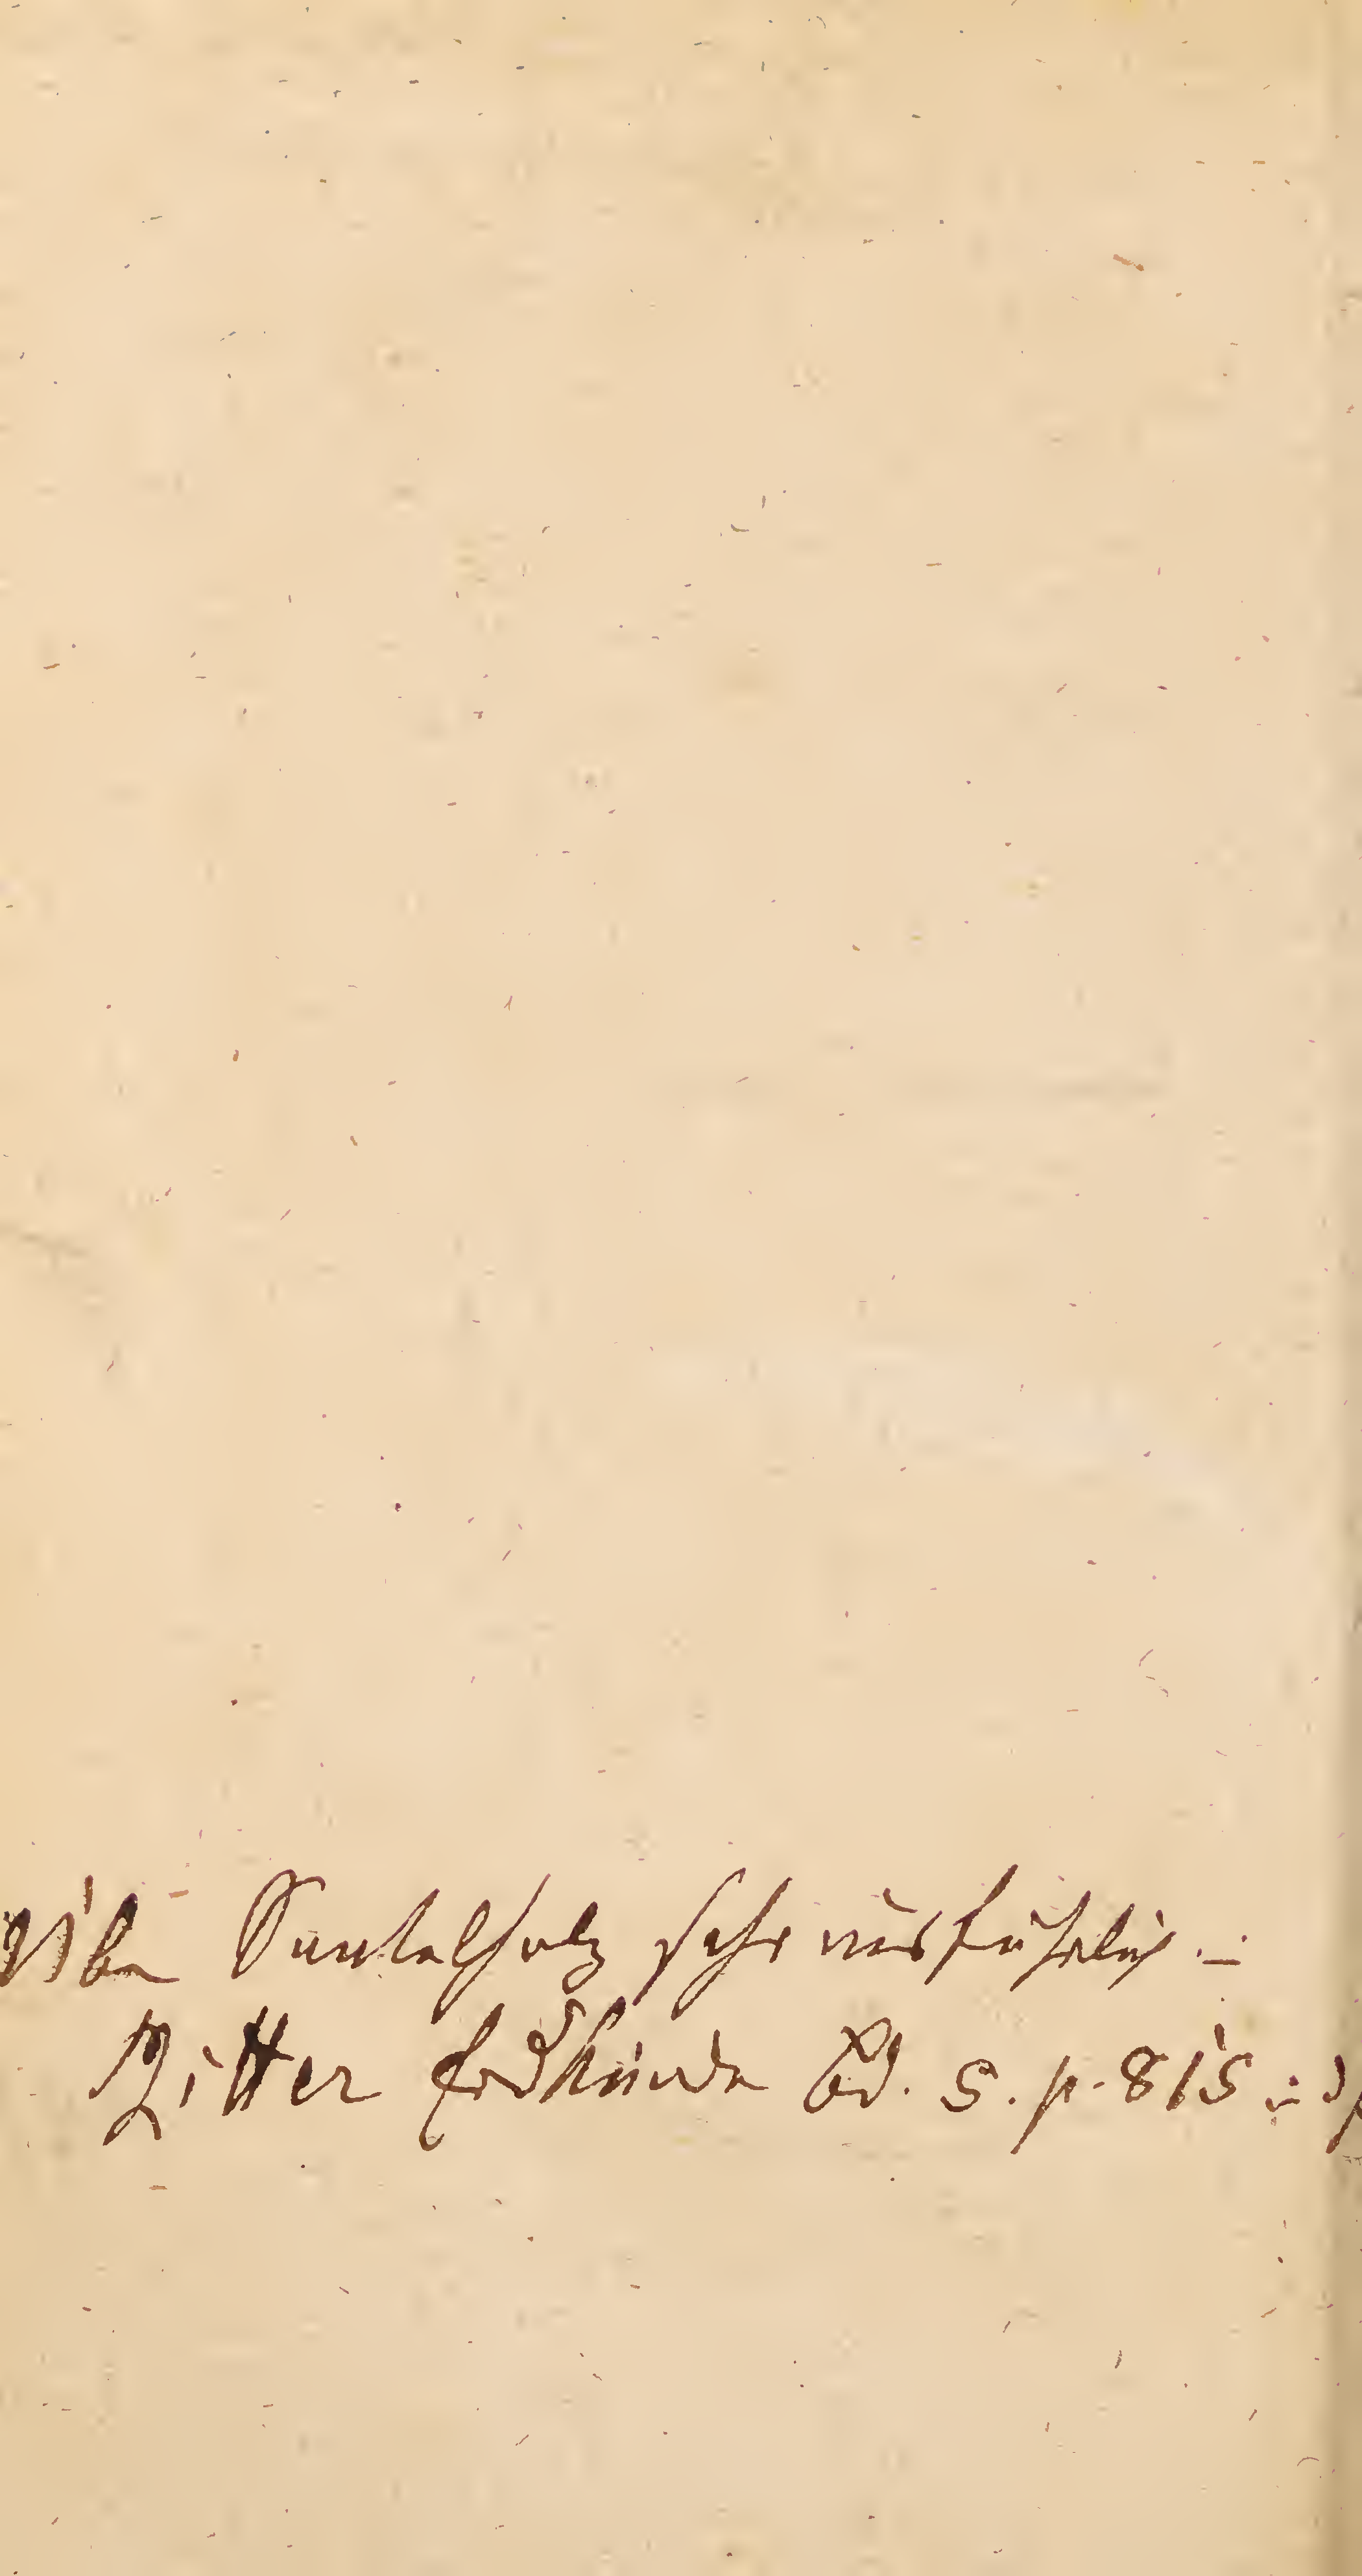 Über Santalholz sehr ausführlich. –
Ritter Erdkunde Bd. 5. p. 815